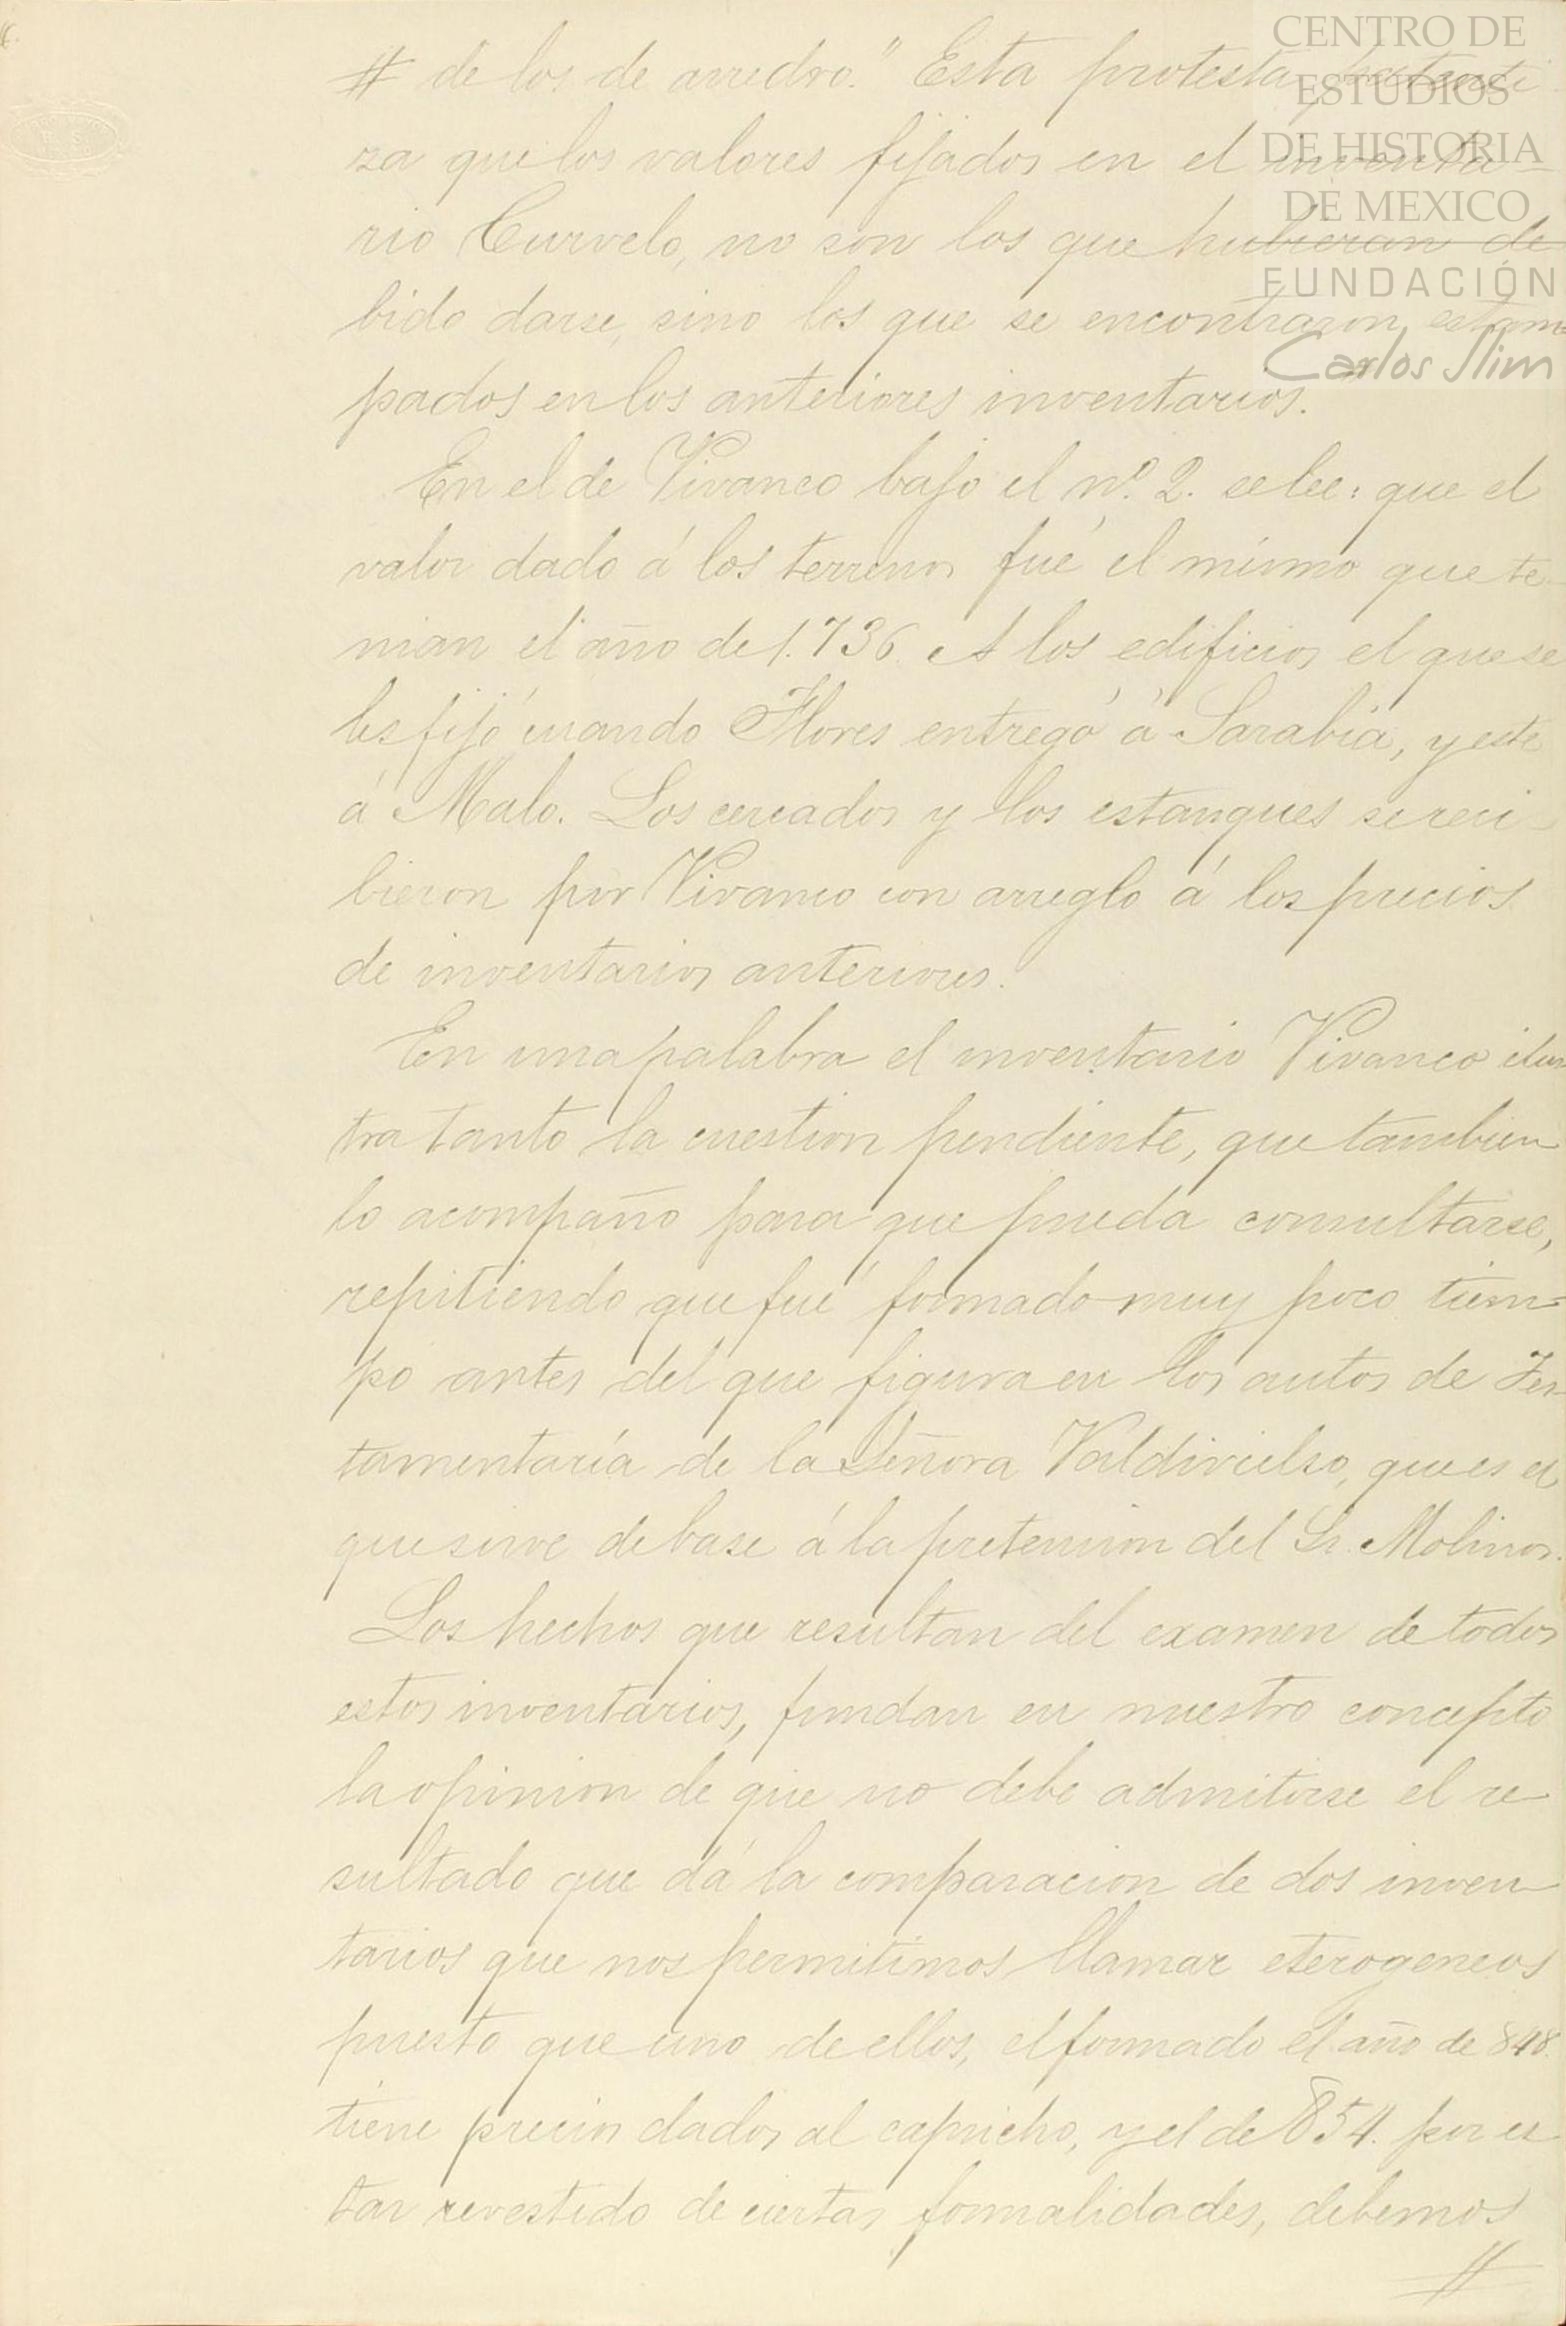 CENTRO DE
ESTUDIOS
DE HISTORIA
DE MEXICO
FUNDACIÓN
Carlos Slim
# de los de arredro." Esta protesta patenti
za que los valores fijados en el inventa-
rio Curvelo, no son los que hubieran de
bido darse, sino los que se encontraron estam=
pados en los anteriores inventarios.
En el de Vivanco bajo el nº. 2. se lee: que el
valor dado á los terrenos fué el mismo que te-
nian el año de 1.736. A los edificios el que se
les fijó cuando Flores entregó á Sarabia, y este
á Malo. Los cercados y los estanques se reci-
bieron por Vivanco con arreglo á los precios
de inventarios anteriores.
En una palabra el inventario Vivanco ilus
tra tanto la cuestion pendiente, que tambien
lo acompaño para que pueda consultarse,
repitiendo que fué formado muy poco tiem=
po antes del que figura en los autos de Tes-
tamentaría de la Señora Valdivielso, que es el
que sirve de base á la pretension del Sr. Molinos.
Los hechos que resultan del examen de todos
estos inventarios, fundan en nuestro concepto
la opinion de que no debe admitirse el re-
sultado que dá la comparacion de dos inven
tarios que nos permitimos llamar eterogeneos
puesto que uno de ellos, el formado el año de 848.
tiene precios dados al capricho, y el de 854. por es
tar revestido de ciertas formalidades, debemos
#